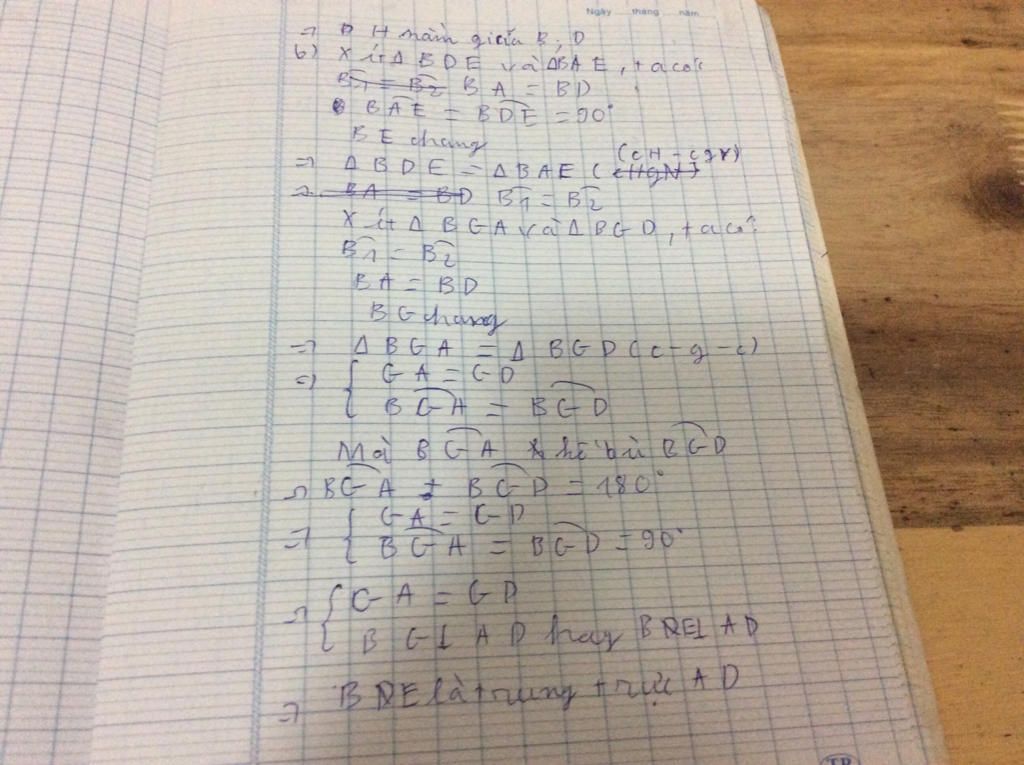 Ngày tháng năm
=> H nằm giữa B, D
b) Xét Δ BDE và ΔBAE, ta có:
B̂1 = B̂2 BA = BD
BAE = BDE = 90°
BE chung
=> Δ BDE = Δ BAE (CH - cgv)
=> BA = BD B̂1 = B̂2
Xét Δ BGA và Δ BGD, ta có:
B̂1 = B̂2
BA = BD
BG chung
=> Δ BGA = Δ BGD (c-g-c)
=> { GA = GD
BGA = BGD
Mà BGA kề bù BGD
=> BGA + BGD = 180°
=> { GA = GD
BGA = BGD = 90°
=> { GA = GD
BG ⊥ AD hay BE ⊥ AD
=> BE là trung trực AD